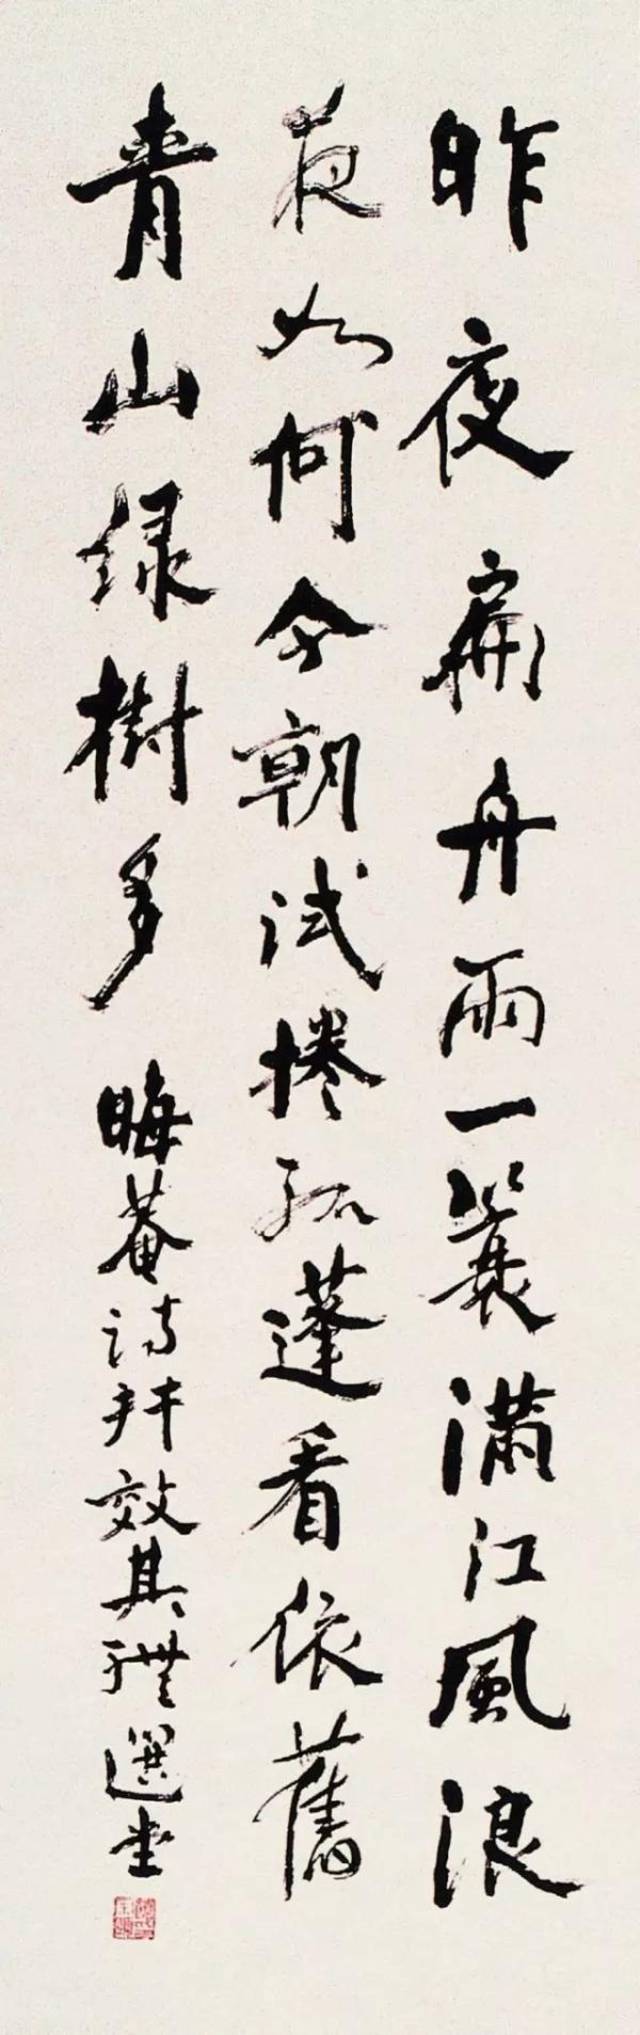 昨夜扁舟雨一蓑滿江風浪
夜如何今朝試捲孤蓬看依舊
青山綠樹多 晦菴詩並效其體選堂